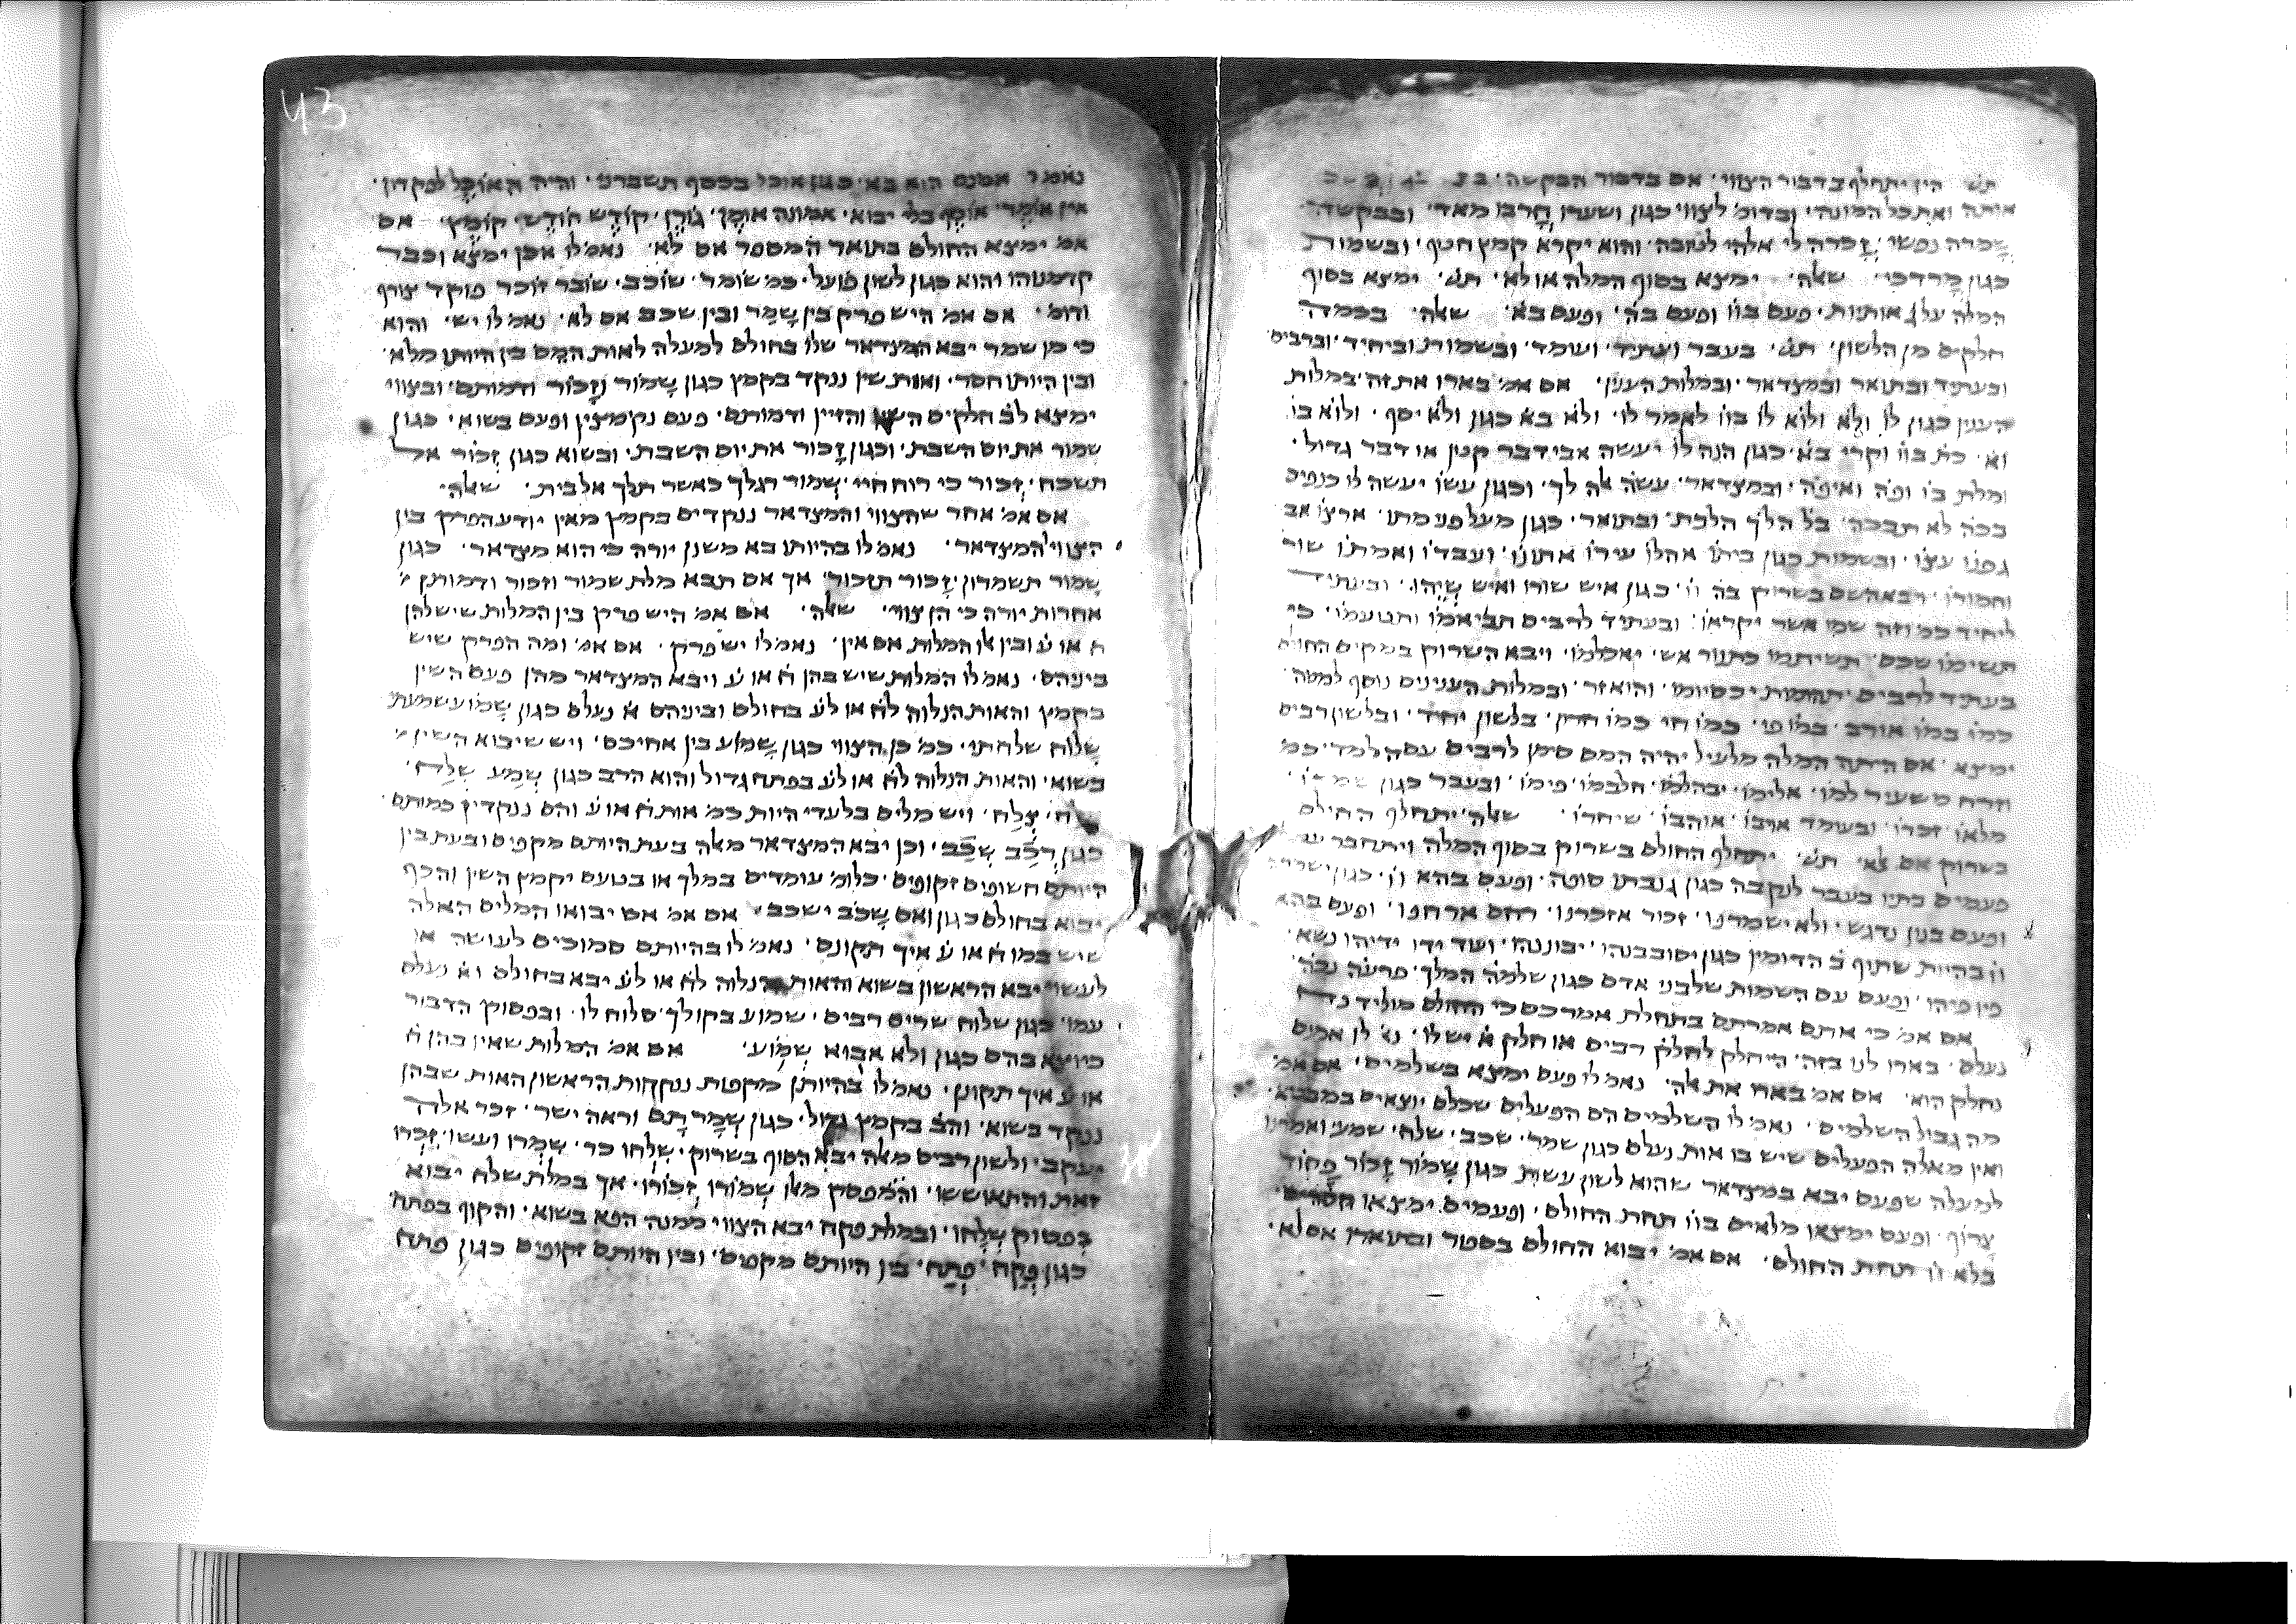 תש׳ הין יתחלף בדבור הצווי׳ אם בדבור הבקשה׳
אותה ואת כל המונה׳ ובדומ׳ לצווי כגון ושערו חֳרבו מאד׳ ובבקשה
שָמרה נפשי׳ זָכרה לי אלהי לטובה׳ והוא יקרא קמץ חטף׳ ובשמות
כגון מָרדכי׳ שאלה׳ ימצא בסוף המלה או לא׳ תש׳ ימצא בסוף
המלה על ג אותיות׳ פעם בוו ופעם בה׳ ופעם בא׳ שאלה׳ בכמה
חלקים מן הלשון׳ תש׳ בעבר ועתיד׳ ועומד׳ ובשמות וביחיד׳ וברבים
ובעתיד ובתואר ובמצדאר׳ ובמלות הענין׳ אם אמ׳ בארו את זה׳ במלות
הענין כגון לו ולא ולוא לו בוו לאמר לו׳ ולא בא כגון ולא יסף׳ ולוא בו
וא׳ כת׳ בוו וקרי בא׳ כגון הנה לו יעשה אבי דבר קטן או דבר גדול׳
ומלת בו ופה ואיפה׳ ובמצדאר׳ עשה אלה לך׳ וכגון עשו יעשה לו כנפים
בכה לא תבכה׳ כל הלך הלכת׳ ובתואר׳ כגון מעל פעמתו׳ ארצו אב
גפנו עצו׳ ובשמות כגון ביתו אהלו עירו אתונו׳ ועבדו ואמתו שור
וחמורו׳ ויבא השם בשרוק בה וו׳ כגון איש שורו ואיש שֵיֵהוּ׳ ובעתיד
ליחיד כמ׳ וזה שמו אשר יקראו׳ ובעתיד לרבים תביאמו ותטעמו׳ כי
תשימו שכם׳ תשיתמו כתנור אש׳ יאכלמו׳ ויבא השרוק במקום החולם
בעתיד לרבים תהומות יכסיומו׳ והוא זר׳ ובמלות הענינים נוסף למטה
כמו במו אורב׳ במו פי׳ כמו חי כמו חרון׳ בלשון יחיד׳ ובלשון רבים
ימצא׳ אם היתה המלה מלעיל יהיה המם סימן לרבים עם הלמד׳ כמ׳
וזרח משעיר למו׳ אלימו׳ יבהלמו׳ חלבמו׳ פימו׳ ובעבר כגון שמרו
מלאו זכרו׳ ובעומד אויבו׳ אוהבו׳ שיחרו׳ שאלה׳ יתחלף החולם
בשרוק אם לא׳ תש׳ יתחלף החולם בשרוק בסוף המלה ויתחבר עם
פעמים כתיו בעבר לנקבה כגון גנבתו סופה׳ ופעם בהא וו׳ כגון ישרפהו
ופעם בנון נדגש׳ ולא ישמרנו׳ זכור אזכרנו׳ רחם ארחמנו׳ ופעם בהא
וו בהיות שתוף ב׳ הדומין כגון יסובבנהו׳ יבוננהו׳ ועוד ידו ידיהו נשא׳
פין פיהו׳ ופעם עם השמות שלבני אדם כגון שלמה המלך׳ פרעה נכה׳
אם אמ׳ כי אתם אמרתם בתחלת אמרכם כי החולם מוליד נח
נעלם׳ בארו לנו בזה׳ היחלק לחלק רבים או חלק א׳ יש לו׳ נא׳ לו אמנם
נחלק הוא׳ אם אמ׳ בארו את אלה׳ נאמ׳ לו פעם ימצא בשלמים׳ אם אמ׳
מה גבול השלמים׳ נאמ׳ לו השלמים הם הפעלים שכלם יוצאים במבטא׳
ואין מאלה הפעלים שיש בו אות נעלם כגון שמר׳ שכב׳ שלח׳ שמע׳ ואמרנו
למעלה שפעם יבא במצדאר שהוא לשון עשות כגון שָמור זָכור פָחוֹד
צָרוֹף׳ ופעם ימצאו מלאים בוו תחת החולם׳ ופעמים ימצאו חסרים׳
בלא וו תחת החולם׳ אם אמ׳ יבוא החולם בספר ובתוארו אם לא׳
נאמר אמנם הוא בא׳ כגון אוכל בכסף תשברני׳ והיה האוכֶל לפקדון׳
אין אומֶר׳ אומֶץ בלי יבוא׳ אמונה אומֶן׳ גורֶן׳ קודֶש חודֶש׳ קומֶץ׳ אם
אמ׳ ימצא החולם בתואר המספר אם לא׳ נאמ׳ לו אכן ימצא וכבר
קדמנוהו והוא כגון לשון פועל׳ כמ׳ שומר׳ שוכב׳ שובר זוכר פוקד צורף
ודומ׳ אם אמ׳ היש פרק בין שָמַר ובין שכב אם לא׳ נאמ׳ לו יש׳ והוא
כי מן שמר יבא המצדאר שלו בחולם למעלה לאות המם בין היותו מלא׳
ובין היותו חסר׳ ואות שין ננקד בקמץ כגון שָמור וְזָכור ודמותם׳ ובצווי
ימצא לב׳ חלקים השין והזיין ודמותם׳ פעם נקמצין ופעם בשוא׳ כגון
שמור את יום השבת׳ וכגון זָכור את יום השבת׳ ובשוא כגון זְכור אל
תשכח׳ זְכור כי רוח חיי׳ שְמור רגלך כאשר תלך אל בית׳ שאלה׳
אם אמ׳ אחר שהצווי והמצדאר ננקדים בקמץ מאין יודע הפרק בין
הצווי והמצדאר׳ נאמ׳ לו בהיותו בא משנן יורה כי הוא מצדאר׳ כגון
שָמור תשמרון׳ זָכור תזכור׳ אך אם תבא מלת שמור וזכור ודמותן
אחרות יורה כי הן צווי׳ שאלה׳ אם אמ׳ היש פרק בין המלות שישלהן
ח׳ או ע׳ ובין אלו המלות אם אין׳ נאמ׳ לו יש פרק׳ אם אמ׳ ומה הפרק שיש
ביניהם׳ נאמ׳ לו המלות שיש בהן ח׳ או ע׳ ויבא המצדאר מהן פעם השין
בקמץ והאות הנלוה לח׳ או לע׳ בחולם וביניהם א׳ נעלם כגון שָמוע שמעתי
שָלוח שלחתי׳ כמ׳ כן הצווי כגון שָמוע בין אחיכם׳ ויש שיבוא השין
בשוא׳ והאות הנלוה לח׳ או לע׳ בפתח גדול והוא הרב כגון שְמַע שְלַח׳
צְלַח׳ ויש מלים בלעדי היות כמ׳ אות ח׳ או ע׳ והם ננקדין כמותם
כגון רְכַב שְכַב׳ וכן יבא המצדאר מאלה בעת היותם מקפים ובעת בין
היותם חשופים זקופים׳ כלומ׳ עומדים במלך או בטעם יקמץ השין והכף
יבוא בחולם כגון ואם שָכֹב ישכב׳ אם אמ׳ אם יבואו המלים האלה
שיש במו ח׳ או ע׳ איך תקונם׳ נאמ׳ לו בהיותם סמוכים לעושה או
לעשוי יבא הראשון בשוא והאות הנלוה לח׳ או לע׳ יבא בחולם וא׳ נעלם
עמו׳ כגון שלוח שרים רבים׳ שמוע בקולך׳ סלוח לו׳ ובפסוק הדבור
כיוצא בהם כגון ולא אבוא שְמוֹע׳ אם אמ׳ המלות שאין בהן ח׳
או ע׳ איך תקונן׳ נאמ׳ לו בהיותן מקפות ננקדות הראשון האות שבהן
ננקד בשוא׳ והב׳ בקמץ גדול׳ כגון שְמָר תָם וראה ישר׳ זכר אלה
יעקב׳ ולשון רבים מאלה יבא הסוף בשרוק׳ שִלְחו כר׳ שִמְרו ועשו׳ זִכְרו
זאת והתאוששו׳ והמפסק מאלו שְמורו זְכורו׳ אך במלת שלח יבוא
בפסוק שְלָחו׳ ובמלת פקח יבא הצווי ממנה הפא בשוא׳ והקוף בפתח
כגון פְקַח׳ פְתַח׳ בין היותם מקפים׳ ובין היותם זקופים כגון פתח